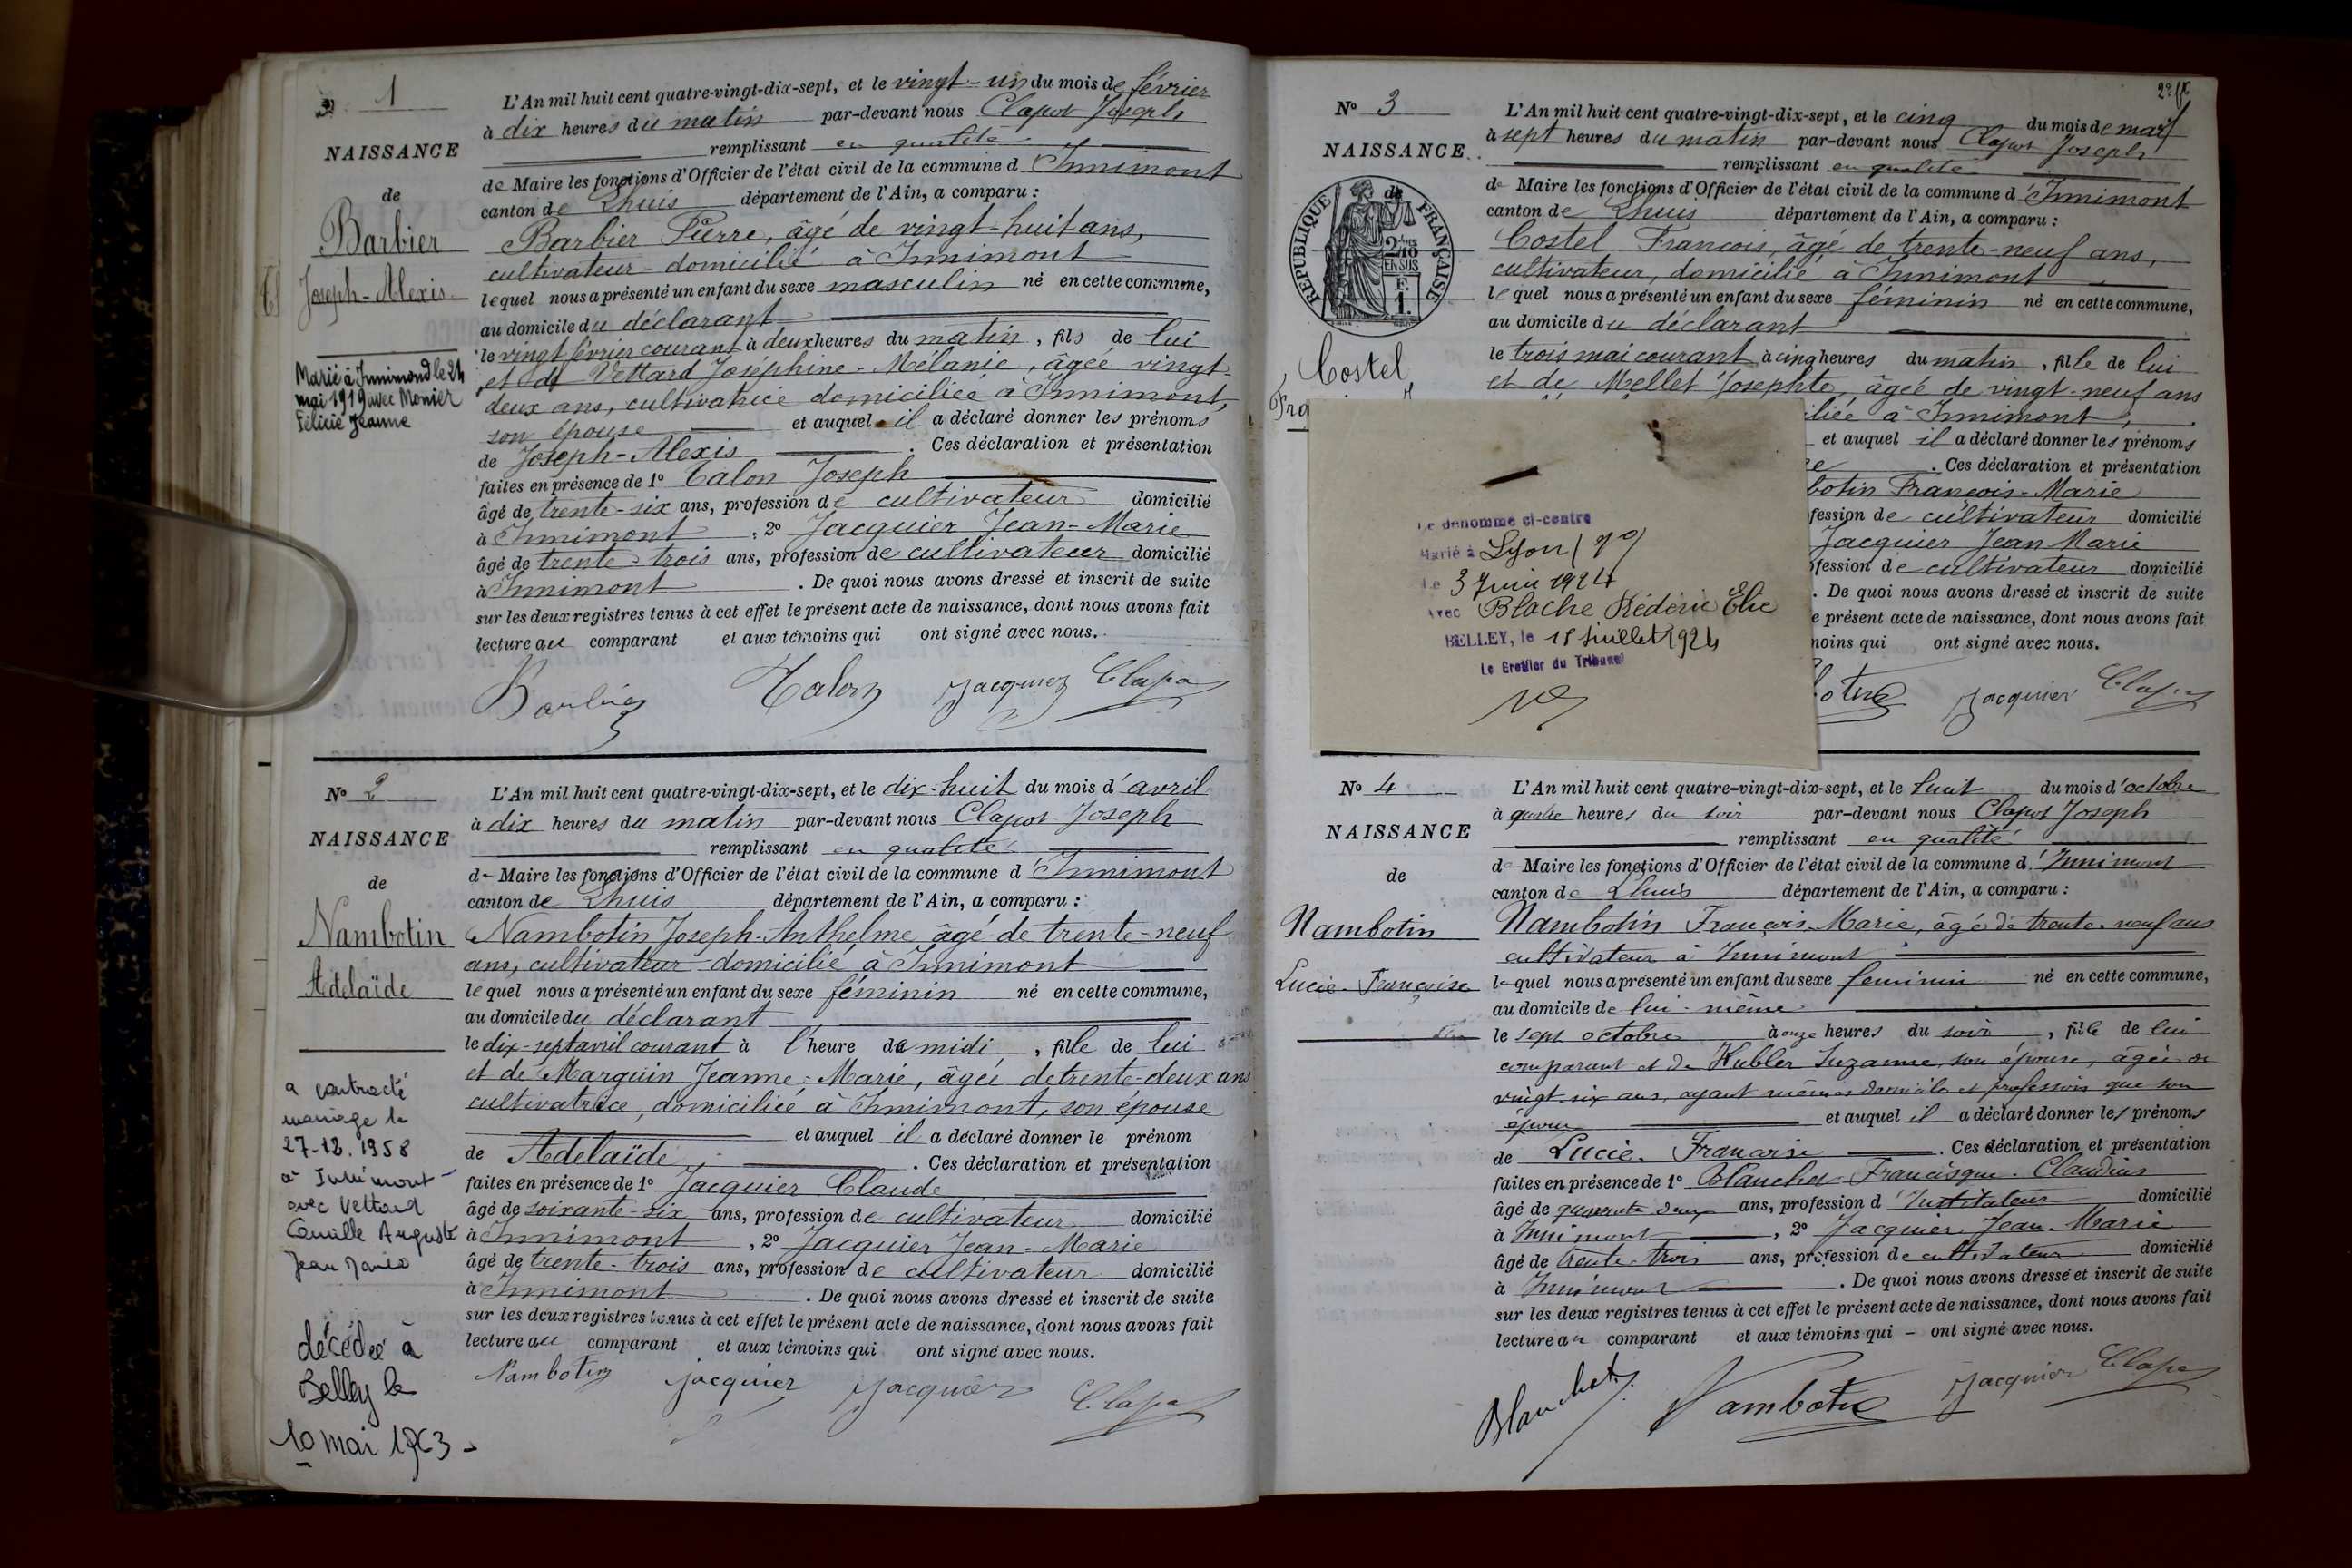 1
NAISSANCE
de
Barbier
Joseph-Alexis
Marié à Innimond le 24
mai 1919 avec Monier
Félicie Jeanne
L'An mil huit cent quatre-vingt-dix-sept, et le vingt-un du mois de février
à dix heures du matin par-devant nous Clapot Joseph
remplissant en qualité
de Maire les fonctions d'Officier de l'état civil de la commune d'Innimont
canton de Lhuis département de l'Ain, a comparu :
Barbier Pierre, âgé de vingt-huit ans,
cultivateur domicilié à Innimont
lequel nous a présenté un enfant du sexe masculin né en cette commune,
au domicile du déclarant
le vingt février courant à deux heures du matin, fils de lui
et de Vettard Joséphine-Mélanie, âgée vingt-
deux ans, cultivatrice domiciliée à Innimont,
son épouse et auquel il a déclaré donner les prénoms
de Joseph-Alexis. Ces déclaration et présentation
faites en présence de 1º Talon Joseph
âgé de trente-six ans, profession de cultivateur domicilié
à Innimont, 2º Jacquier Jean-Marie
âgé de trente-trois ans, profession de cultivateur domicilié
à Innimont. De quoi nous avons dressé et inscrit de suite
sur les deux registres tenus à cet effet le présent acte de naissance, dont nous avons fait
lecture au comparant et aux témoins qui ont signé avec nous.
Barbier Talon Jacquier Clapot
Nº 2
NAISSANCE
de
Nambotin
Adelaïde
a contracté
mariage le
27-12.1958
à Innimont
avec Vettard
Camille Auguste
Jean Marie
décédée à
Belley le
10 mai 1963
L'An mil huit cent quatre-vingt-dix-sept, et le dix-huit du mois d'avril
à dix heures du matin par-devant nous Clapot Joseph
remplissant en qualité
de Maire les fonctions d'Officier de l'état civil de la commune d'Innimont
canton de Lhuis département de l'Ain, a comparu :
Nambotin Joseph-Anthelme âgé de trente-neuf
ans, cultivateur domicilié à Innimont
lequel nous a présenté un enfant du sexe féminin né en cette commune,
au domicile du déclarant
le dix-sept avril courant à l'heure de midi, fille de lui
et de Marguin Jeanne-Marie, âgée de trente-deux ans
cultivatrice, domiciliée à Innimont, son épouse
et auquel il a déclaré donner le prénom
de Adelaïde. Ces déclaration et présentation
faites en présence de 1º Jacquier Claude
âgé de soixante-six ans, profession de cultivateur domicilié
à Innimont, 2º Jacquier Jean-Marie
âgé de trente-trois ans, profession de cultivateur domicilié
à Innimont. De quoi nous avons dressé et inscrit de suite
sur les deux registres tenus à cet effet le présent acte de naissance, dont nous avons fait
lecture au comparant et aux témoins qui ont signé avec nous.
Nambotin Jacquier Jacquier Clapot
Nº 3
NAISSANCE
de
RÉPUBLIQUE FRANÇAISE
2/10 EN SUS
F. 1.
Costel
L'An mil huit cent quatre-vingt-dix-sept, et le cinq du mois de mai
à sept heures du matin par-devant nous Clapot Joseph
remplissant en qualité
de Maire les fonctions d'Officier de l'état civil de la commune d'Innimont
canton de Lhuis département de l'Ain, a comparu :
Costel François, âgé de trente-neuf ans,
cultivateur, domicilié à Innimont
lequel nous a présenté un enfant du sexe féminin né en cette commune,
au domicile du déclarant
le trois mai courant à cinq heures du matin, fille de lui
et de Mellet Josephte, âgée de vingt-neuf ans
iliée à Innimont,
et auquel il a déclaré donner les prénoms
. Ces déclaration et présentation
botin François-Marie
fession de cultivateur domicilié
Jacquier Jean Marie
fession de cultivateur domicilié
. De quoi nous avons dressé et inscrit de suite
e présent acte de naissance, dont nous avons fait
moins qui ont signé avec nous.
Jacquier Clapot
Le dénommé ci-contre
Marié à Lyon (7º)
Le 3 Juin 1924
Avec Blache Frédéric Elie
BELLEY, le 18 Juillet 1924
Le Greffier du Tribunal
Nº 4
NAISSANCE
de
Nambotin
Lucie-Françoise
L'An mil huit cent quatre-vingt-dix-sept, et le huit du mois d'octobre
à quatre heures du soir par-devant nous Clapot Joseph
remplissant en qualité
de Maire les fonctions d'Officier de l'état civil de la commune d'Innimont
canton de Lhuis département de l'Ain, a comparu :
Nambotin François-Marie, âgé de trente-neuf ans
cultivateur à Innimont
lequel nous a présenté un enfant du sexe féminin né en cette commune,
au domicile de lui-même
le sept octobre à onze heures du soir, fille de lui
comparant et de Kubler Suzanne, son épouse, âgée de
vingt-six ans, ayant mêmes domicile et profession que son
époux et auquel il a déclaré donner les prénoms
de Lucie-Françoise. Ces déclaration et présentation
faites en présence de 1º Blanchet Francisque-Claudius
âgé de quarante-deux ans, profession d'Instituteur domicilié
à Innimont, 2º Jacquier Jean-Marie
âgé de trente-trois ans, profession de cultivateur domicilié
à Innimont. De quoi nous avons dressé et inscrit de suite
sur les deux registres tenus à cet effet le présent acte de naissance, dont nous avons fait
lecture au comparant et aux témoins qui ont signé avec nous.
Blanchet Nambotin Jacquier Clapot